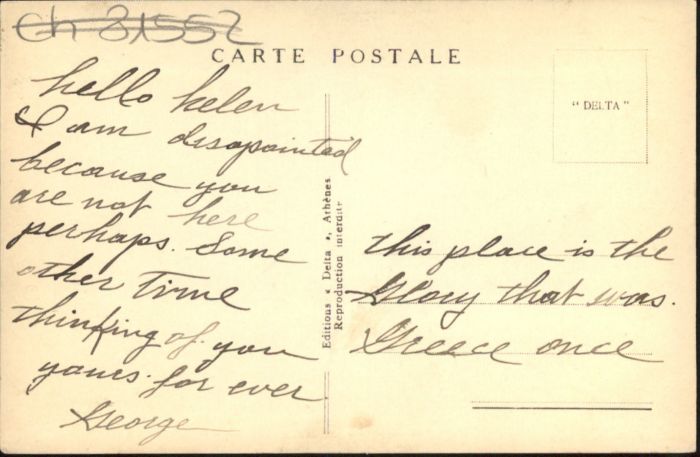 Ch 81552
CARTE POSTALE
hello helen
I am disapointed
because you
are not here
perhaps. Some
other Time
thinking of you
yours. for ever
George
Editions « Delta », Athènes
Reproduction interdite
" DELTA "
this place is the
Glory that was.
Greece once